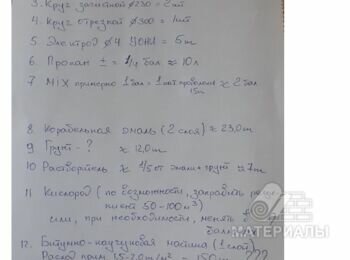 3. Круг зачистной ⌀230 = 2шт
4. Круг отрезной ⌀300 = 1шт
5 Электрод ⌀4 УОНИ = 5т
6. Пропан ± = 1/4 бал ≈ 10л
7 MIX примерно 1 бал = 1 проволоки ≈ 2 бал.
15т
8. Корабельная эмаль (2 слоя) ≈ 23,0т
9 Грунт - ? ≈ 12,0т
10 Растворитель ≈ 4/5 от эмали + грунт ≈ 7т
11 Кислород (по возможности, заправить
50-100м³)
или, при необходимости, менять в
12. Битумно-каучуковая мастика (1 слой)
Расход = 150т ???
МАТЕРИАЛЫ